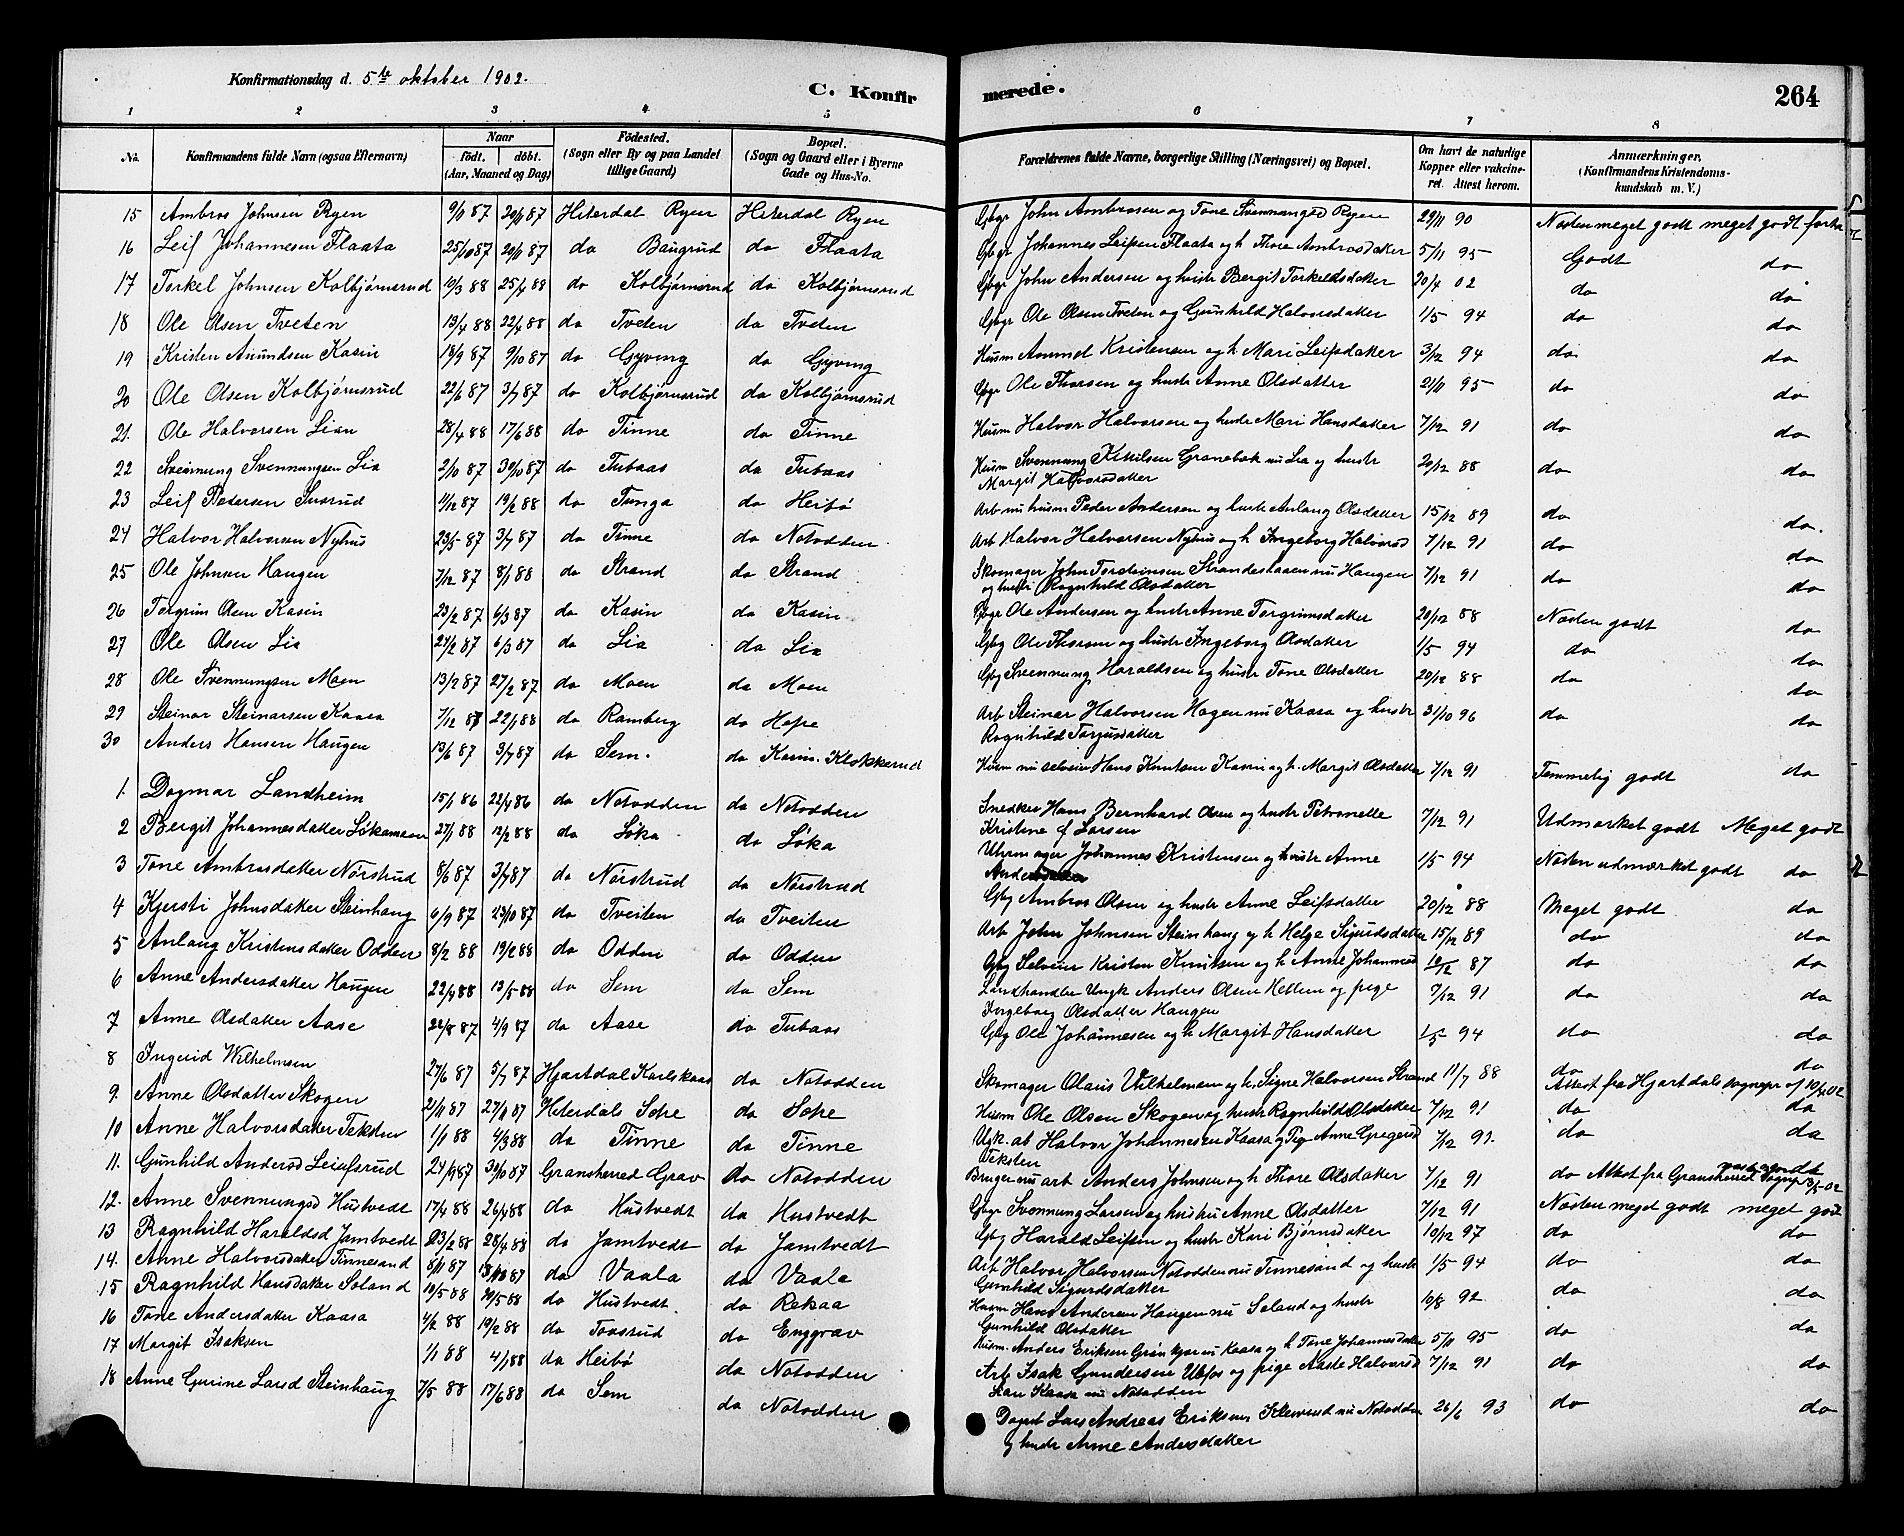 Konfirmationsdag d. 5te oktober 1902.
C. Konfirmerede.
264
1 2 3 4 5 6 7 8
No. Konfirmandens fulde Navn (ogsaa Efternavn) Naar födt. döbt. (Aar, Maaned og Dag) Födested. (Sogn eller By og paa Landet tillige Gaard) Bopæl. (Sogn og Gaard eller i Byerne Gade og Hus-No. Forældrenes fulde Navne, borgerlige Stilling (Næringsvei) og Bopæl. Om havt de naturlige Kopper eller vakcineret. Attest herom. Anmærkninger. (Konfirmandens Kristendomskundskab m. V.)
15 Ambros Johnsen Ryen 87 87 Hiterdal Ryen Hiterdal Ryen Gbgr John Ambrosen og Tone Svennungsd Ryen 29/11 90 Næsten meget godt meget godt
16 Leif Johannesen Flaata 25/10 87 20/11 87 do Baugrud do Flaata Gbgr Johannes Leifsen Flaata og h. Thore Ambrosdatter 5/11 95 Godt do
17 Torkel Johnsen Kolbjørnsrud 19/3 88 25/4 88 do Kolbjørnsrud do Kolbjørnsrud Gbgr John Andersen og hustr Bergit Torkeldsdatter 20/4 02 do do
18 Ole Olsen Tveten 13/4 88 22/4 88 do Tveten do Tveten Gbgr Ole Olsen Tveten og Gunhild Halvorsdatter 1/5 94 do do
19 Kristen Amundsen Kasin 18/9 87 9/10 87 do Gyving do Gyving Husm Amund Kristensen og h. Mari Leifsdatter 3/12 94 do do
20 Ole Olsen Kolbjørnsrud 22/6 87 3/7 87 do Kolbjørnsrud do Kolbjørnsrud Gbgr Ole Thorsen og hustr Anne Olsdatter 21/11 95 do do
21. Ole Halvorsen Lian 28/4 88 17/6 88 do Tinne do Tinne Husm Halvor Halvorsen og hustr Mari Hansdatter 7/12 91 do do
22 Svennung Svennungsen Lia 2/10 87 30/10 87 do Tubaas do Tubaas Husm Svennung Kittilsen Granebak nu Lia og hustr 20/12 88 do do
Margit Halvorsdatter
23 Leif Pedersen 11/12 87 19/2 88 do Tunga do Heibø Arb nu husm Peder Andersen og hustr Anlaug Olsdatter 15/12 89 do do
24 Halvor Halvorsen Nyhus 23/5 87 3/7 87 do Tinne do Notodden Arb Halvor Halvorsen Nyhus og h Ingeborg Halvorsd 7/12 91 do do
25 Ole Johnsen Haugen 7/12 87 8/1 88 do Strand do Strand Skomager John Torsteinsen nu Haugen 7/12 91 do do
og hustr Ragnhild Olsdatter
26 Torgrim Olsen Kasin 23/2 87 6/3 87 do Kasin do Kasin Gbgr Ole Andersen og hustr Anne Torgrimsdatter 20/12 88 Næsten godt do
27 Ole Olsen Lia 21/2 87 6/3 87 do Lia do Lia Gbg Ole Thorsen og hustr Ingeborg Olsdatter 1/5 94 do do
28 Ole Svennungsen Moen 13/2 87 27/2 87 do Moen do Moen Gbg Svennung Haraldsen og hustr Tone Olsdatter 20/12 88 do do
29 Steinar Steinarsen Kaasa 7/12 87 22/1 88 do Ramberg do Hope Arb Steinar Halvorsen Hagen nu Kaasa og hustr 31/10 96 do do
Ragnhild Torgusdatter
30 Anders Hansen Haugen 13/6 87 3/7 87 do Sem. do Kasin. Klokkerud Husm nu Hans Knutsen Kasin og h. Margit Olsdatter 7/12 91 Temmelig godt do
1. Dagmar Landheim 15/1 86 22/4 86 do Notodden do Notodden Snedker Hans Bernhard Olsen og hustr Petronelle 7/12 91 Udmærket godt Meget godt
Kristine f Larsen
2 Bergit Johannesdatter Løkamoen 27/1 88 12/2 88 do Løka do Løka Uhrmager Johannes Kristensen og hustr Anne 1/5 94 Næsten udmærket godt do
3 Tone Ambrosdatter Nørstrud 8/6 87 3/7 87 do Nørstrud do Nørstrud Gbg Ambros Olsen og hustr Anne Leifsdatter 20/12 88 Meget godt do
4 Kjersti Johnsdatter Steinhaug 6/9 87 23/10 87 do Tveiten do Tveiten Arb John Johnsen Steinhaug og h Helga Sigurdsdatter 15/12 89 do do
5 Anlaug Kristensdatter Odden 8/2 88 19/2 88 do Odden do Odden Gbg Selveier Kristen Knutsen og h Anne Johannesd 87 do do
6 Anne Andersdatter Haugen 22/4 88 13/5 88 do Sem do Sem Landhandler Ungk Anders Olsen Hettem og pige 7/12 91 do do
Ingeborg Olsdatter Haugen
7 Anne Olsdatter Aase 22/8 87 4/9 87 do Aase do Tubaas Gbg Ole Johannesen og h Margit Hansdatter 1/5 94 do do
8 Ingrid Wilhelmsen 27/6 87 5/7 87 Hjartdal Karlskaas do Notodden Skomager Olaus Vilhelmsen og h. Signe Halvorsen Strand 11/7 88 do do
Attest fra Hjartdals sognepr af 10/4 02
9. Anne Olsdatter Skogen 2/11 87 27/11 87 Hiterdals Sope do Sope Husm Ole Olsen Skogen og hustr Ragnhild Olsdatter 7/12 91 do do
10 Anne Halvorsdatter Teksten 1/1 88 4/3 88 do Tinne do Tinne Ugk. ab Halvor Johannesen Kaasa og Pige Anne Gregersd 7/12 91. do do
Teksten
11. Gunhild Andersd Leifsrud 87 30/10 87 Gransherred Grav do Notodden Bruger nu arb Anders Johnsen og h Thore Olsdatter 7/12 91 do Attest fra Gransherred Sognepr 02
12. Anne Svennungsd Hustvedt 17/4 88 26/4 88 do Hustvedt do Hustvedt Gbgr Svennung Larsen og hustru Anne Olsdatter 7/12 91 Næsten meget godt meget godt
13 Ragnhild Haraldsd Jamtvedt 23/2 88 28/4 88 do Jamtvedt do Jamtvedt Gbg Harald Leifsen og hustr Kari Bjørnsdatter 10/12 97 do do
14. Anne Halvorsdatter Tinnesand 8/11 87 87 do Vaala do Vaale Arb Halvor Halvorsen Notodden nu Tinnesand og hustr 1/5 94 do do
Gunhild Sigurdsdatter
15 Ragnhild Hansdatter Soland 10/5 88 20/5 88 do Hustvedt. do Rekaa Husm Hans Andersen Haugen nu Soland og hustr 10/8 92 do do
Gunhild Olsdatter
16 Tone Andersdatter Kaasa 4/2 88 19/2 88 do Toosrud do Enggrav Husm. Anders Eriksen nu Kaasa og h Tone Johannesdatter 5/11 95 do do
17 Margit Isaksen 1/1 88 4/1 88 do Heibø do Notodden Arb Isak Gundersen Ulfos og pige Aaste Halvorsd 7/12 91 do do
Kaasa nu Notodden
18 Anne Gurine Larsd Steinhaug 7/5 88 17/6 88 do Sem do Notodden Lars Andreas Eriksen nu Notodden 26/6 93 do do
og hustr Anne Andersdatter